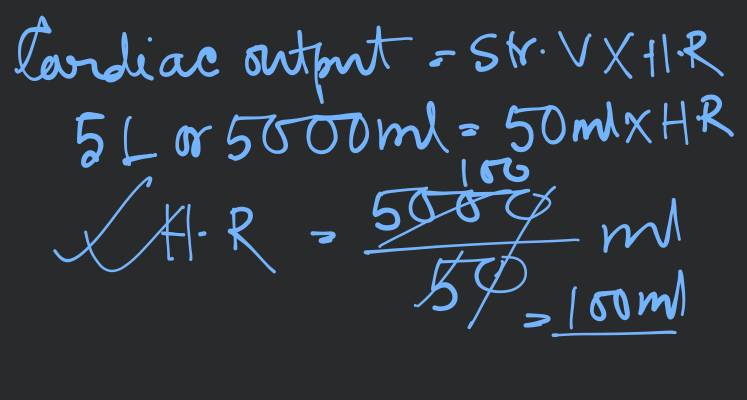 Cardiac output = Str. V X H.R
5 L or 5000ml = 50ml X H.R
100
H.R = 5000/50 ml
= 100ml